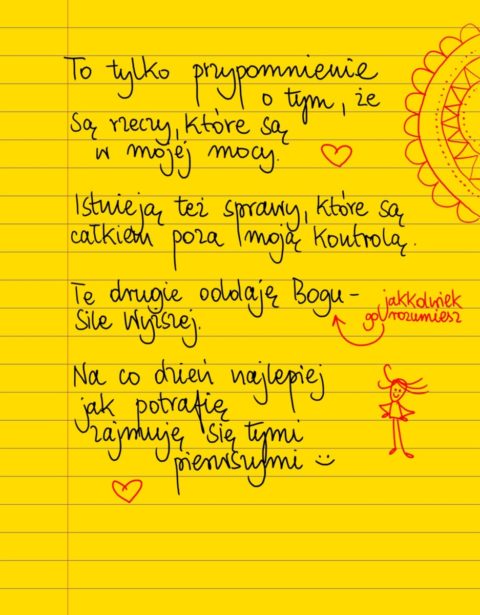 To tylko przypomnienie
o tym, że
są rzeczy, które są
w mojej mocy.
Istnieją też sprawy, które są
całkiem poza moją kontrolą.
Te drugie oddaję Bogu -
Sile Wyższej.
jakkolwiek
go rozumiesz
Na co dzień najlepiej
jak potrafię
zajmuję się tymi
pierwszymi :)